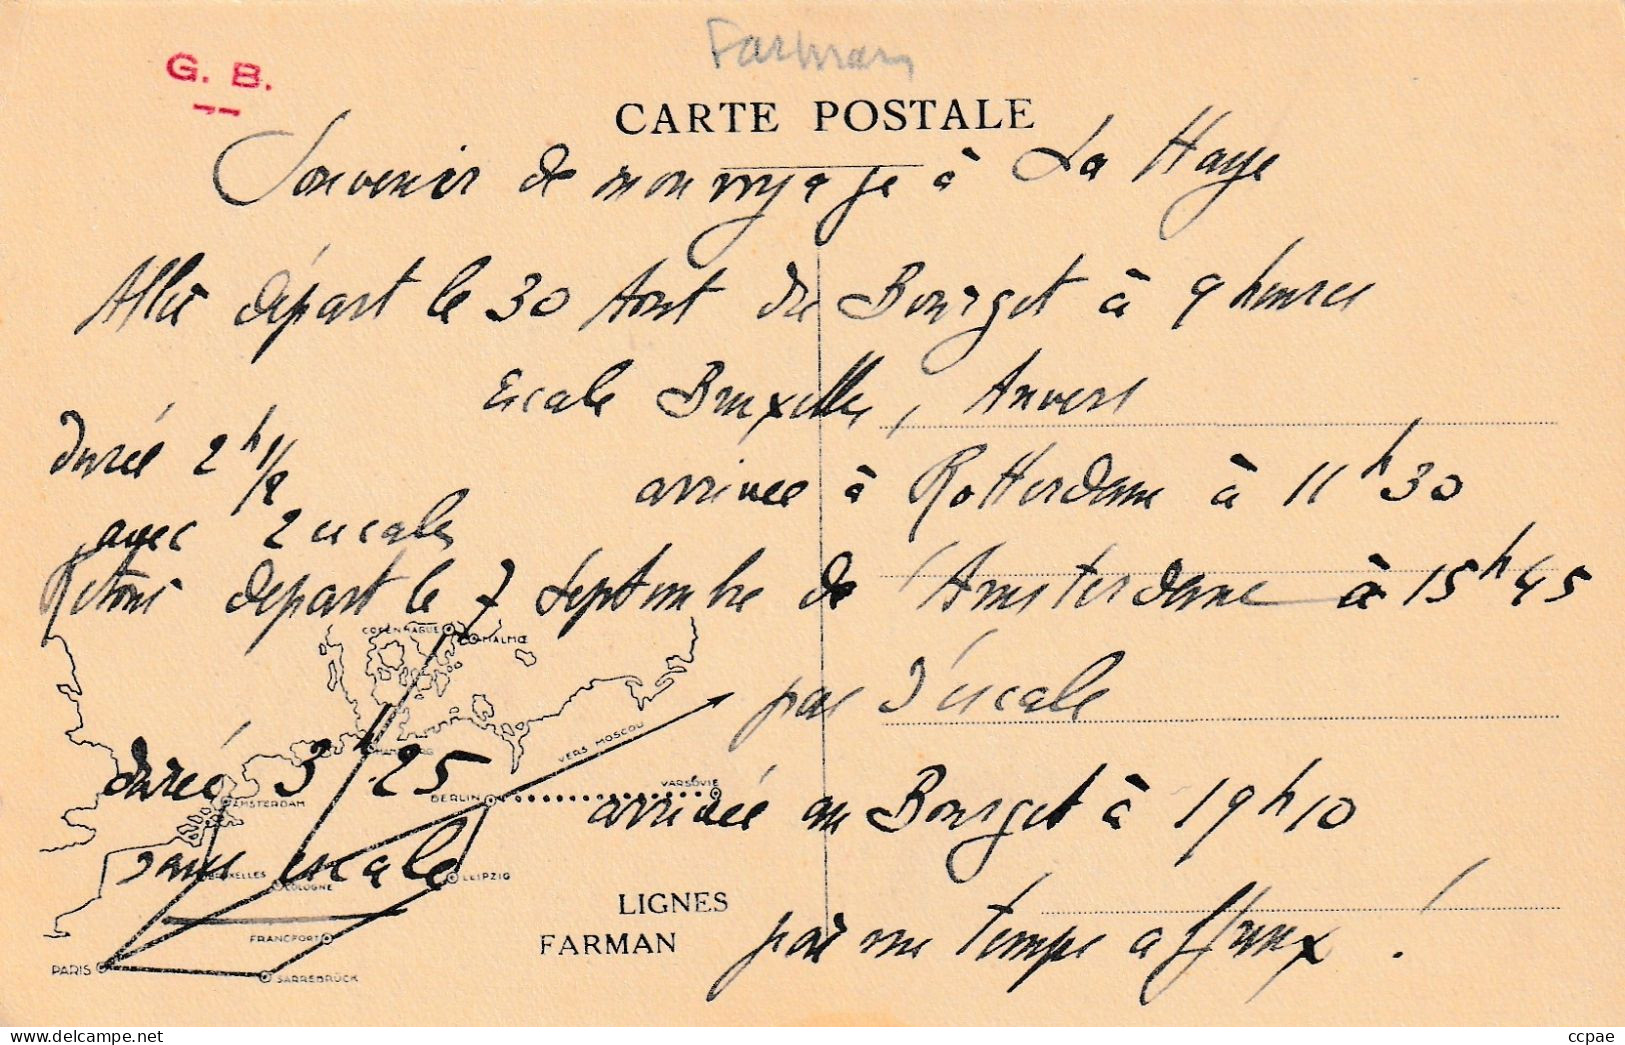 Farman
G. B.
CARTE POSTALE
Souvenir de mon voyage à La Haye
Aller départ le 30 Aout du Bourget à 9 heures
Escale Bruxelles, Anvers
durée 2h 1/2
arrivée à Rotterdam à 11h30
avec 2 escales
Retour départ le 7 Septembre de Amsterdam à 15h45
COPENHAGUE
MALMOE
pas d'escale
VERS MOSCOU
HAMBOURG
durée 3h25
VARSOVIE
BERLIN
AMSTERDAM
arrivée au Bourget à 19h10
sans escale
BRUXELLES
COLOGNE
LEIPZIG
LIGNES
FARMAN
par un temps affreux !
FRANCFORT
PARIS
SARREBRÜCK
ccpae